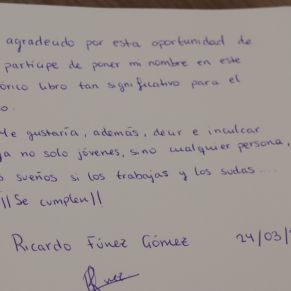 agradecido por esta oportunidad de
participe de poner mi nombre en este
libro tan significativo para el
Me gustaría, además, decir e inculcar
no solo jóvenes, sino cualquier persona,
sueños si los trabajas y los sudas...
¡¡Se cumplen!!
Ricardo Fúnez Gómez 24/03/